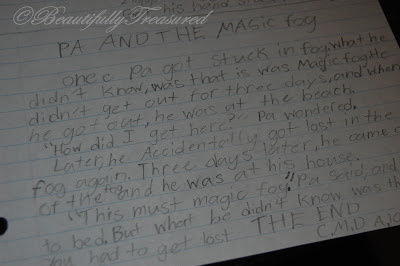 ©BeautifullyTreasured
his hand
PA AND THE MAGIC fog
once Pa got stuck in fog. what he
didn't know, was that is was Magic fog. He
didn't get out for three days, and when
he got out, he was at the beach.
"How did I get here?" Pa wondered.
Later, he Accidentally got lost in the
fog again. Three days later, he came
of the fog and he was at his house.
"This must magic fog." Pa said, and
to bed. But what he didn't know was th
you had to get lost THE END
C.M.D